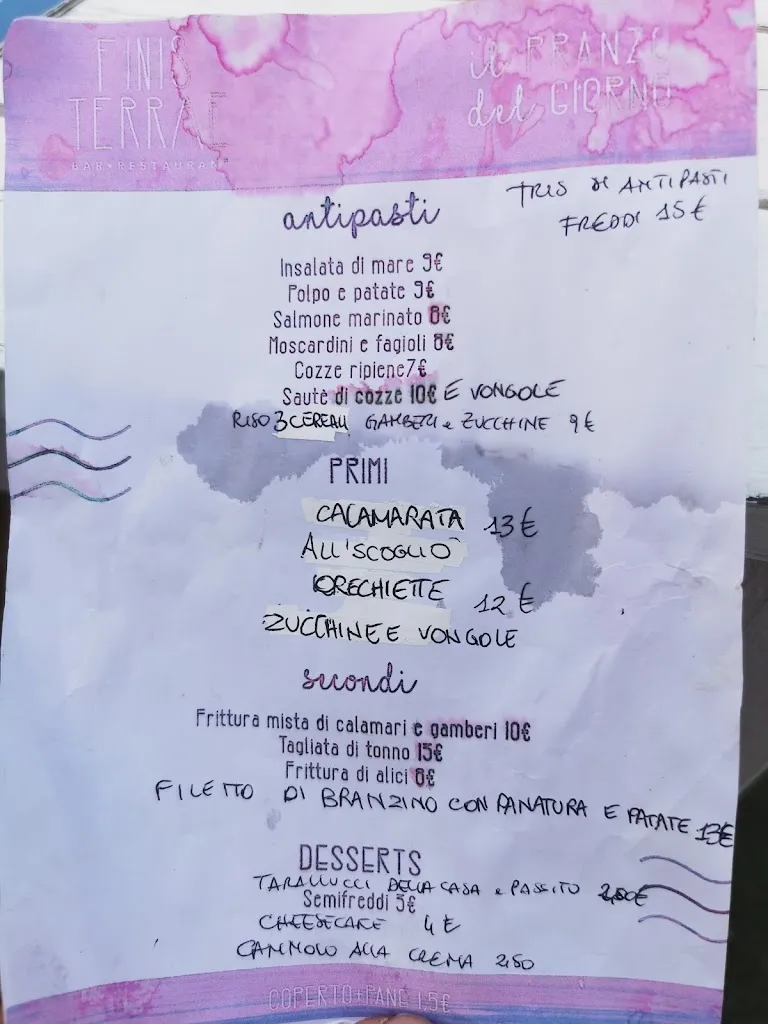 FINIS
TERRAE
BAR RESTAURANT
il PRANZO
del GIORNO
TRIS DI ANTIPASTI
FREDDI 15€
antipasti
Insalata di mare 9€
Polpo e patate 9€
Salmone marinato 8€
Moscardini e fagioli 8€
Cozze ripiene7€
Sautè di cozze 10€ E VONGOLE
RISO 3 CEREALI GAMBERI e ZUCCHINE 9€
PRIMI
CALAMARATA 13€
ALL'SCOGLIO
ORECHIETTE 12€
ZUCCHINE E VONGOLE
secondi
Frittura mista di calamari e gamberi 10€
Tagliata di tonno 15€
Frittura di alici 8€
FILETTO DI BRANZINO CON PANATURA E PATATE 13€
DESSERTS
TARALLUCCI DELLA CASA e PASSITO 2,50€
Semifreddi 5€
CHEESECAKE 4€
CANNOLO ALLA CREMA 2,50
COPERTO+PANE 1,5€